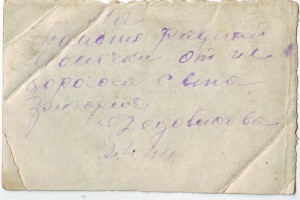 На
память родной
мамочки от ее
дорогого сына
Григория
Дедовикова
2.4.44